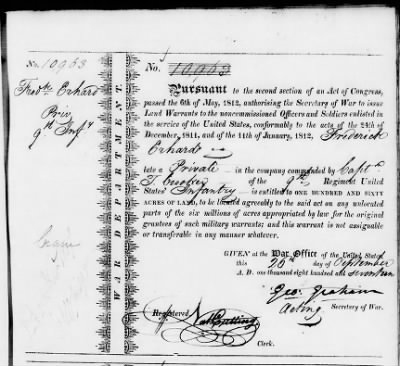 No. 10963
Fredke Erhard
Priv
9th Infy
WAR DEPARTMENT.
No. 10,963
Pursuant to the second section of an Act of Congress,
passed the 6th of May, 1812, authorising the Secretary of War to issue
Land Warrants to the noncommissioned Officers and Soldiers enlisted in
the service of the United States, conformably to the acts of the 24th of
December, 1811, and the 11th of January, 1812, Frederick
Erhard
late a Private in the company commanded by Capt.
of the 9th Regiment United
States' Infantry is entitled to ONE HUNDRED AND SIXTY
ACRES OF LAND, to be located agreeably to the said act on any unlocated
parts of the six millions of acres appropriated by law for the original
grantees of such military warrants; and this warrant is not assignable
or transferable in any manner whatever.
GIVEN at the War Office of the United States
this day of September
A. D. one thousand eight hundred and seventeen
Geo: Graham
Acting Secretary of War.
Registered Nat Cutting
Clerk.